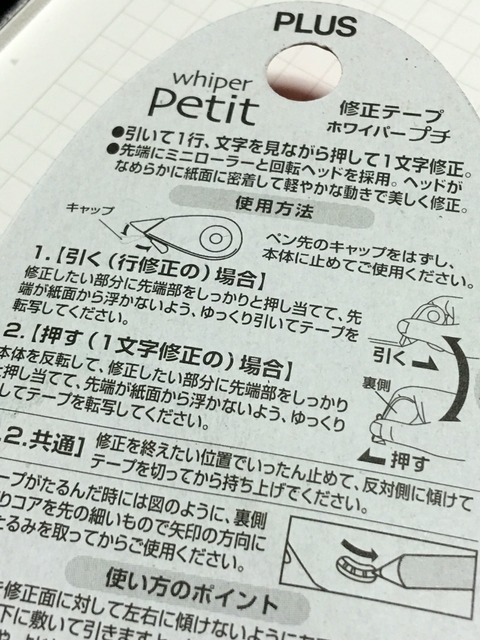 PLUS
whiper
Petit
修正テープ
ホワイパープチ
●引いて1行、文字を見ながら押して1文字修正。
●先端にミニローラーと回転ヘッドを採用。ヘッドが
なめらかに紙面に密着して軽やかな動きで美しく修正。
使用方法
キャップ
ペン先のキャップをはずし、
本体に止めてご使用ください。
1.【引く(行修正の)場合】
修正したい部分に先端部をしっかりと押し当てて、先
端が紙面から浮かないよう、ゆっくり引いてテープを
転写してください。
引く
2.【押す(1文字修正の)場合】
本体を反転して、修正したい部分に先端部をしっかり
と押し当てて、先端が紙面から浮かないよう、ゆっくり
してテープを転写してください。
裏側
押す
.2.共通】 修正を終えたい位置でいったん止めて、反対側に傾けて
テープを切ってから持ち上げてください。
ープがたるんだ時には図のように、裏側
りコアを先の細いもので矢印の方向に
たるみを取ってからご使用ください。
使い方のポイント
修正面に対して左右に傾けないように
下に敷いて引きますと